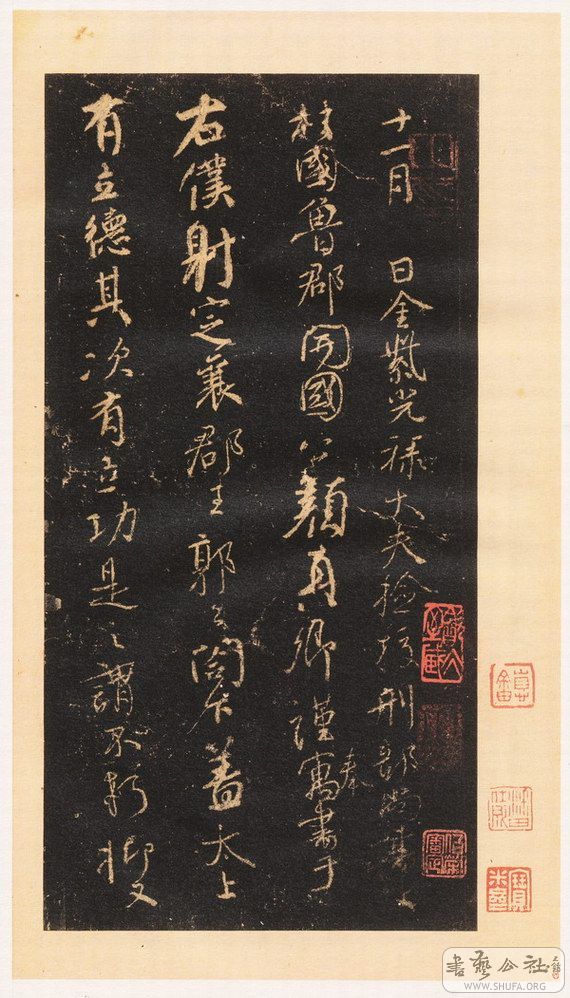 十一月 日金紫光祿大夫檢校刑部尚書上
柱國魯郡開國公顏真卿謹奉寓書于
右僕射定襄郡王郭公閤下蓋太上
有立德其次有立功是之謂不朽抑又
書藝公社
WWW.SHUFA.ORG